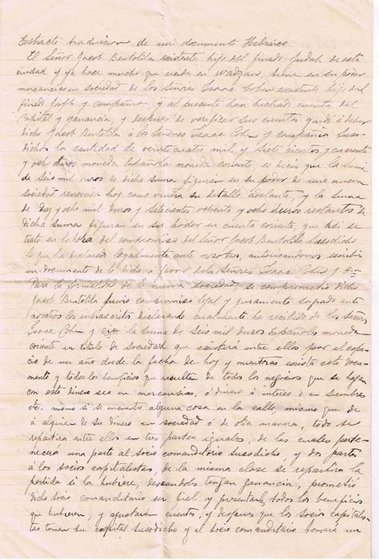 Extracto traducción de un documento Hebraico
El Señor Jacob Bentolila existente hijo del finado Judah de esta
ciudad, y ya hace mucho que reside en Wadzan, tiene en su poder
mercancías en sociedad de los Señores Isaac Cohen existente hijo del
finado Jafé y compañia, y al presente han hechado cuenta del
Capital y ganancia, y despues de verificar sus cuentas quedó á deber
dicho Jacob Bentolila á los Señores Isaac Cohen y compañia susodichos
la cantidad de veinticuatro mil y siete cientos
y ocho duros moneda española moneda corriente es decir que la suma
de seis mil duros de dicha suma figuran en su poder de una nueva
sociedad renovada hoy como vendrá su detalle adelante, y la suma
de diez y ocho mil duros y setecientos y ocho duros restantes de
dicha suma figuran en su poder en cuenta corriente, que
en la del compromiso del Señor Jacob Bentolila susodicho
lo que ha declarado legalmente ante nosotros, autorizandonos escribir
un documento de lo dicho á favor de los Señores Isaac Cohen y Cª
Para la formalidad de la nueva sociedad, se comprometió dicho
Jacob Bentolila previo compromiso legal y juramento ante
nosotros los infrascritos declarando cualmente ha recibido de los Señores
Isaac Cohen y Cia la suma de seis mil duros Españoles moneda
corriente en estilo de sociedad que existirá entre ellos por el espacio
de un año desde la fecha de hoy y mientras exista este documento
y todo los beneficios que resulten de todos los negocios que se hagan
con este dinero sea en mercancias, ó dinero á interes o en siembra
etc. mismo si se encuentra alguna cosa en la calle, mismo que dé
á alguien de su dinero en sociedad ó de otra manera, todo se
repartirá entre ellos en tres partes iguales, de las cuales pertenecera
una parte al socio comanditario susodicho y dos partes
á los socios capitalistas, de la misma clase se repartira la
perdida si la hubiere, deseandoles tengan ganancia, prometió
dicho socio comanditario ser fiel y presentará todos los beneficios
que hubieren y ajustaran cuentas, y despues que los socios capitalistas
tomen su capital susodicho y el socio comanditario tomará un